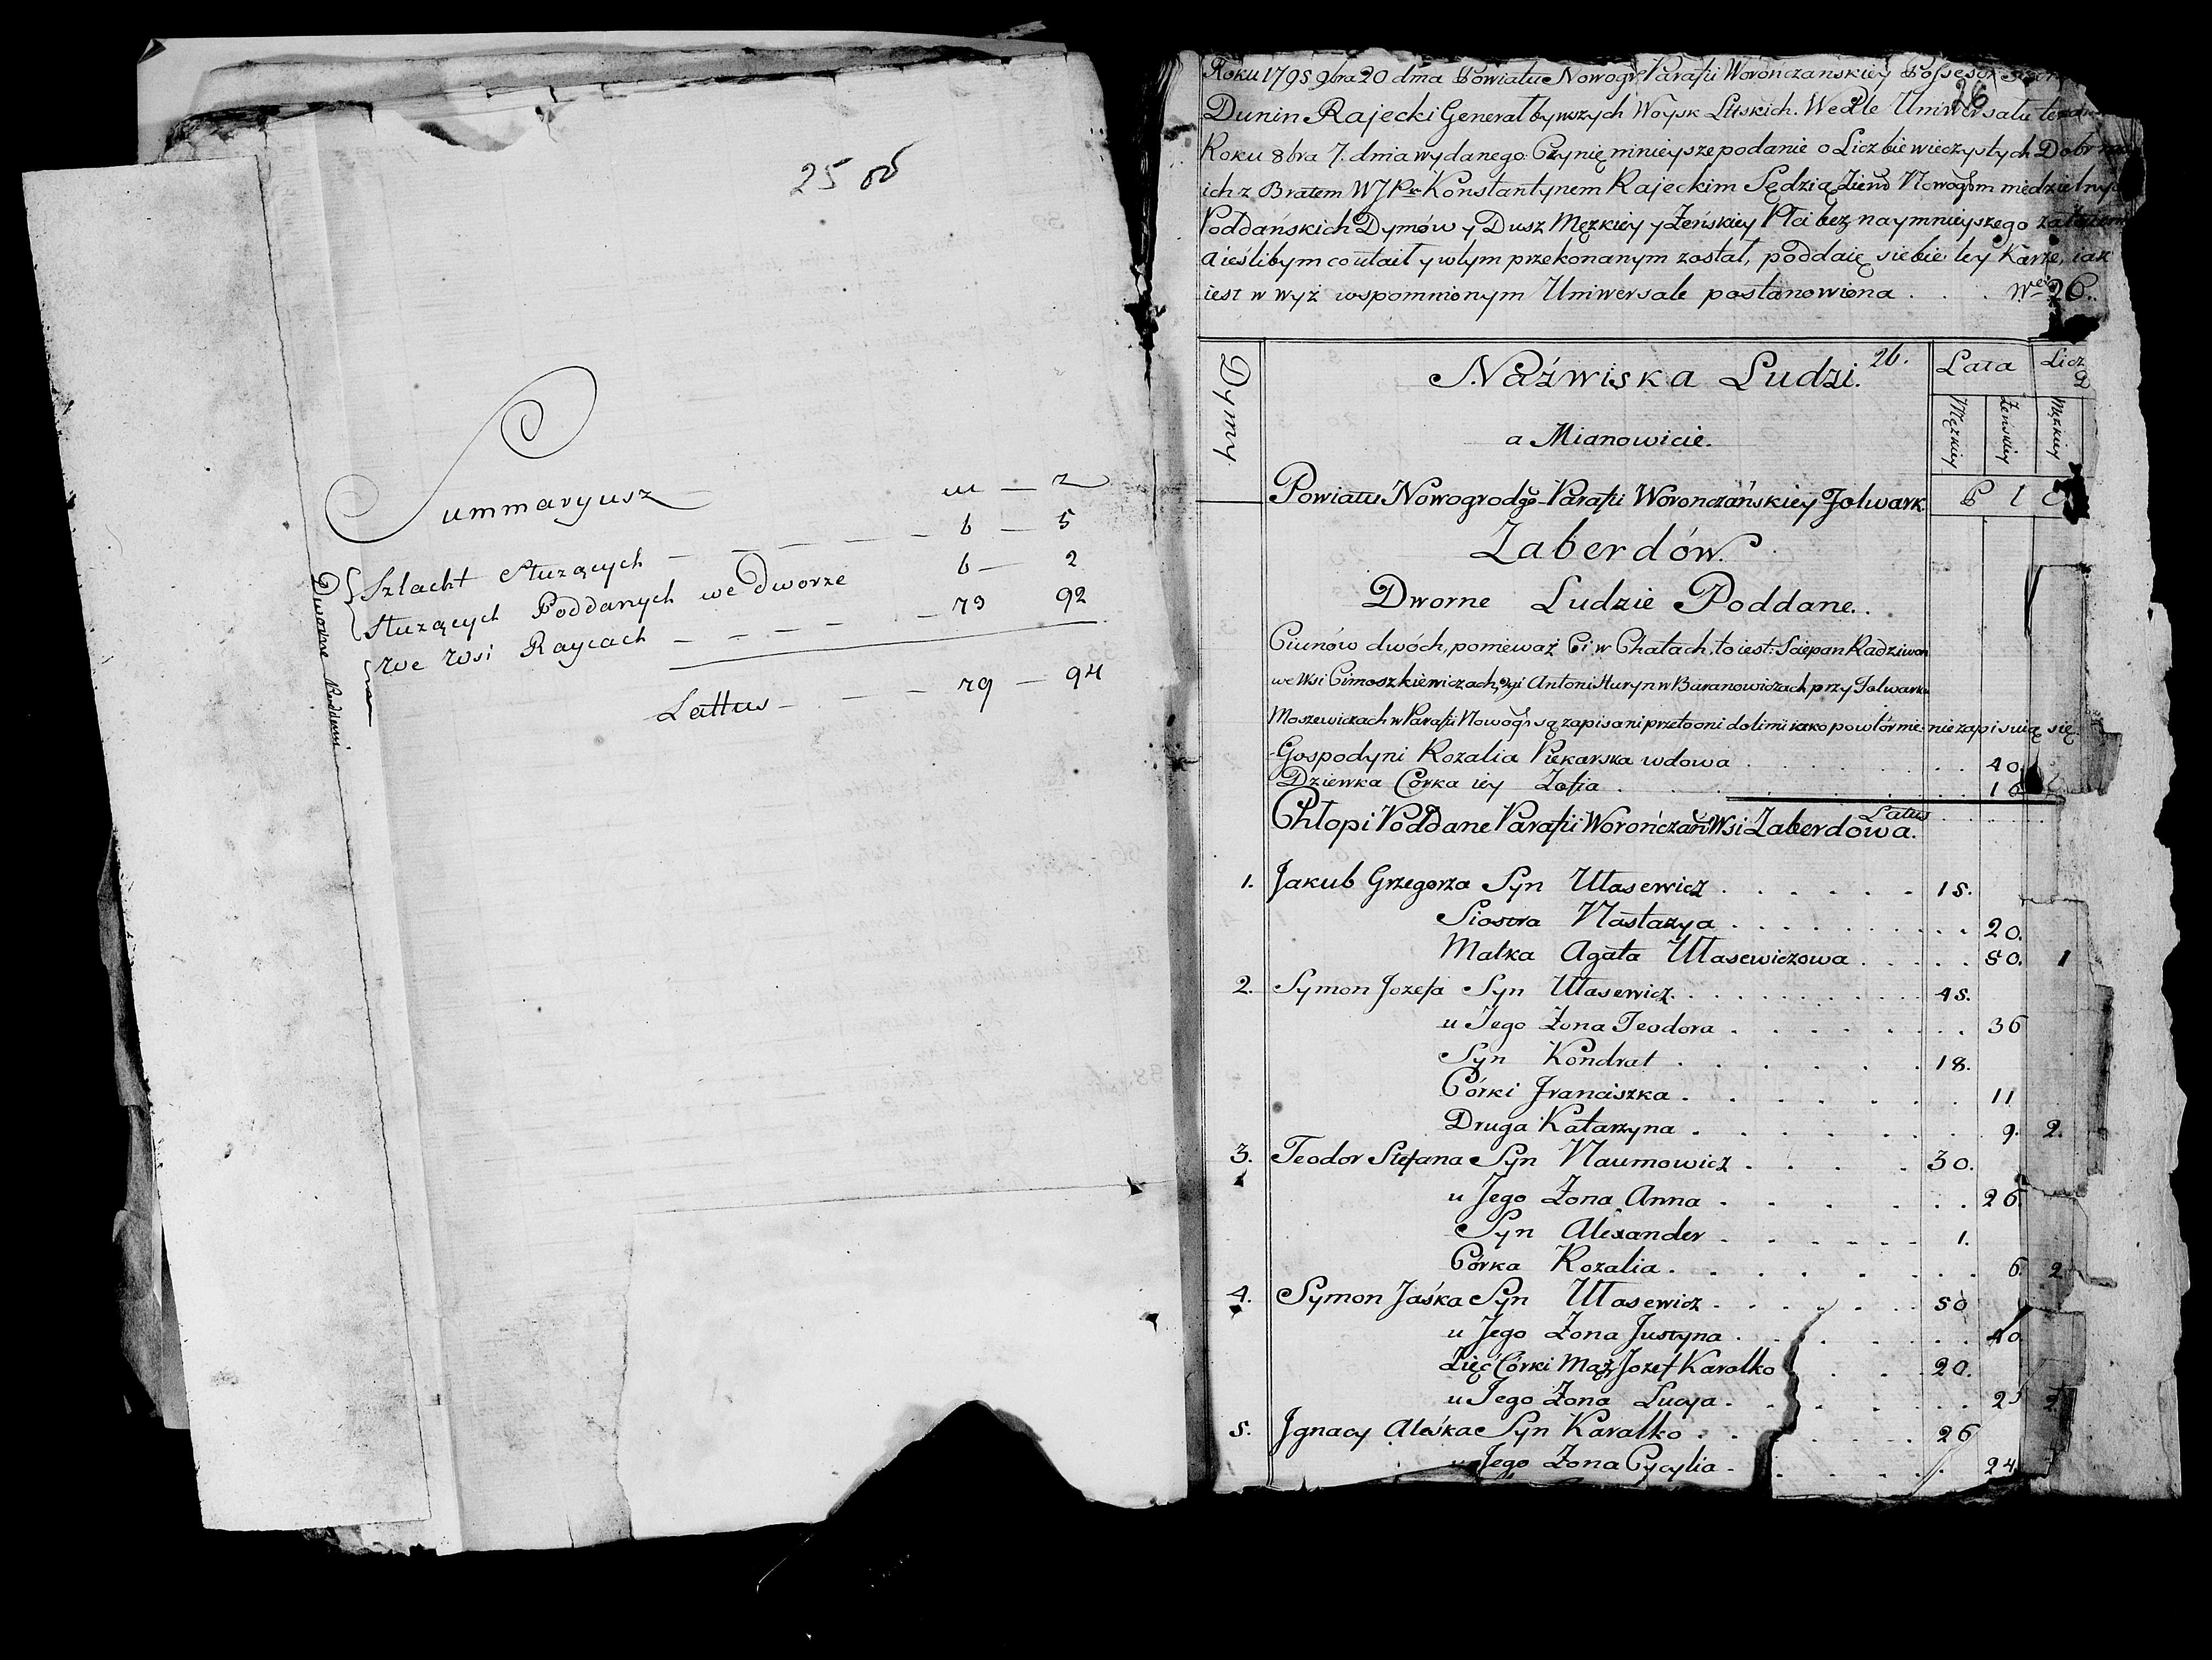 25 об
Summaryusz
m — z
Szlacht Służących — — — — — 6 — 5
Służących Poddanych we Dworze 6 — 2
we wsi Raycach — — — — — 73 92
Lattus — — — 79 — 94
Dworne Poddani
Roku 1795 9bra 20 dnia Powiatu Nowogr: Parafii Worończanskiey Possesor
26
Dunin Rajecki Generał bywszych Woysk Littskich. Wedle Uniwersału
Roku 8bra 7. dnia wydanego. Czynię ninieysze podanie o Liczbie wieczystych Dobr
ich z Bratem WJPn Konstantynem Rajeckim Sędzią Ziem Nowogrm niedzielnych
Poddańskich Dymów y Dusz Męzkiey y Żeńskiey Płci bez naymnieyszego
a ieślibym co utaił y w tym przekonanym został, poddaię siebie tey Karze, iak
iest w wyż wspomnionym Uniwersale postanowiona . . . Nr 26.
Dymy
Naźwiska Ludzi. 26.
Lata
Licz
a Mianowicie.
Męzkiey
Żeńskiey
Męzkiey
Powiatu Nowogrodgo Parafii Worończańskiey Folwark
P ł C
Zaberdów.
Dworne Ludzie Poddane.
Ciunów dwóch, poniewaź Ci w Chatach, to iest: Sciepan Radziwon
we Wsi Cimoszkiewiczach, 2gi Antoni Huryn w Baranowiczach przy Folwarku
Moszewiczach w Parafii Nowogr są zapisani przeto oni do limi iako powtórnie nie zapisuią się.
Gospodyni Rozalia Piekarska wdowa . . . 40.
Dziewka Corka iey Zofia . . . 16
Latus
Chłopi Poddane Parafii Worończań Wsi Zaberdowa.
1. Jakub Grzegorza Syn Ułasewicz . . . 15.
Siostra Nastazya . . . 20.
Matka Agata Ułasewiczowa . . . 50. 1
2. Symon Jozefa Syn Ułasewicz . . . 45.
u Jego Żona Teodora . . . 36
Syn Kondrat . . . 18.
Córki Franciszka . . . 11
Druga Katarzyna . . . 9. 2.
3. Teodor Stefana Syn Naumowicz . . . 30.
u Jego Żona Anna . . . 26.
Syn Alexander . . . 1.
Córka Rozalia . . . 6. 2
4. Symon Jaśka Syn Ułasewicz . . . 50
u Jego Żona Justyna . . . 40.
Zięć Córki Mąż Jozef Karalko . . . 20.
u Jego Żona Lucya . . . 25 2.
5. Jgnacy Aleśka Syn Karalko . . . 26
u Jego Żona Cycylia . . . 24